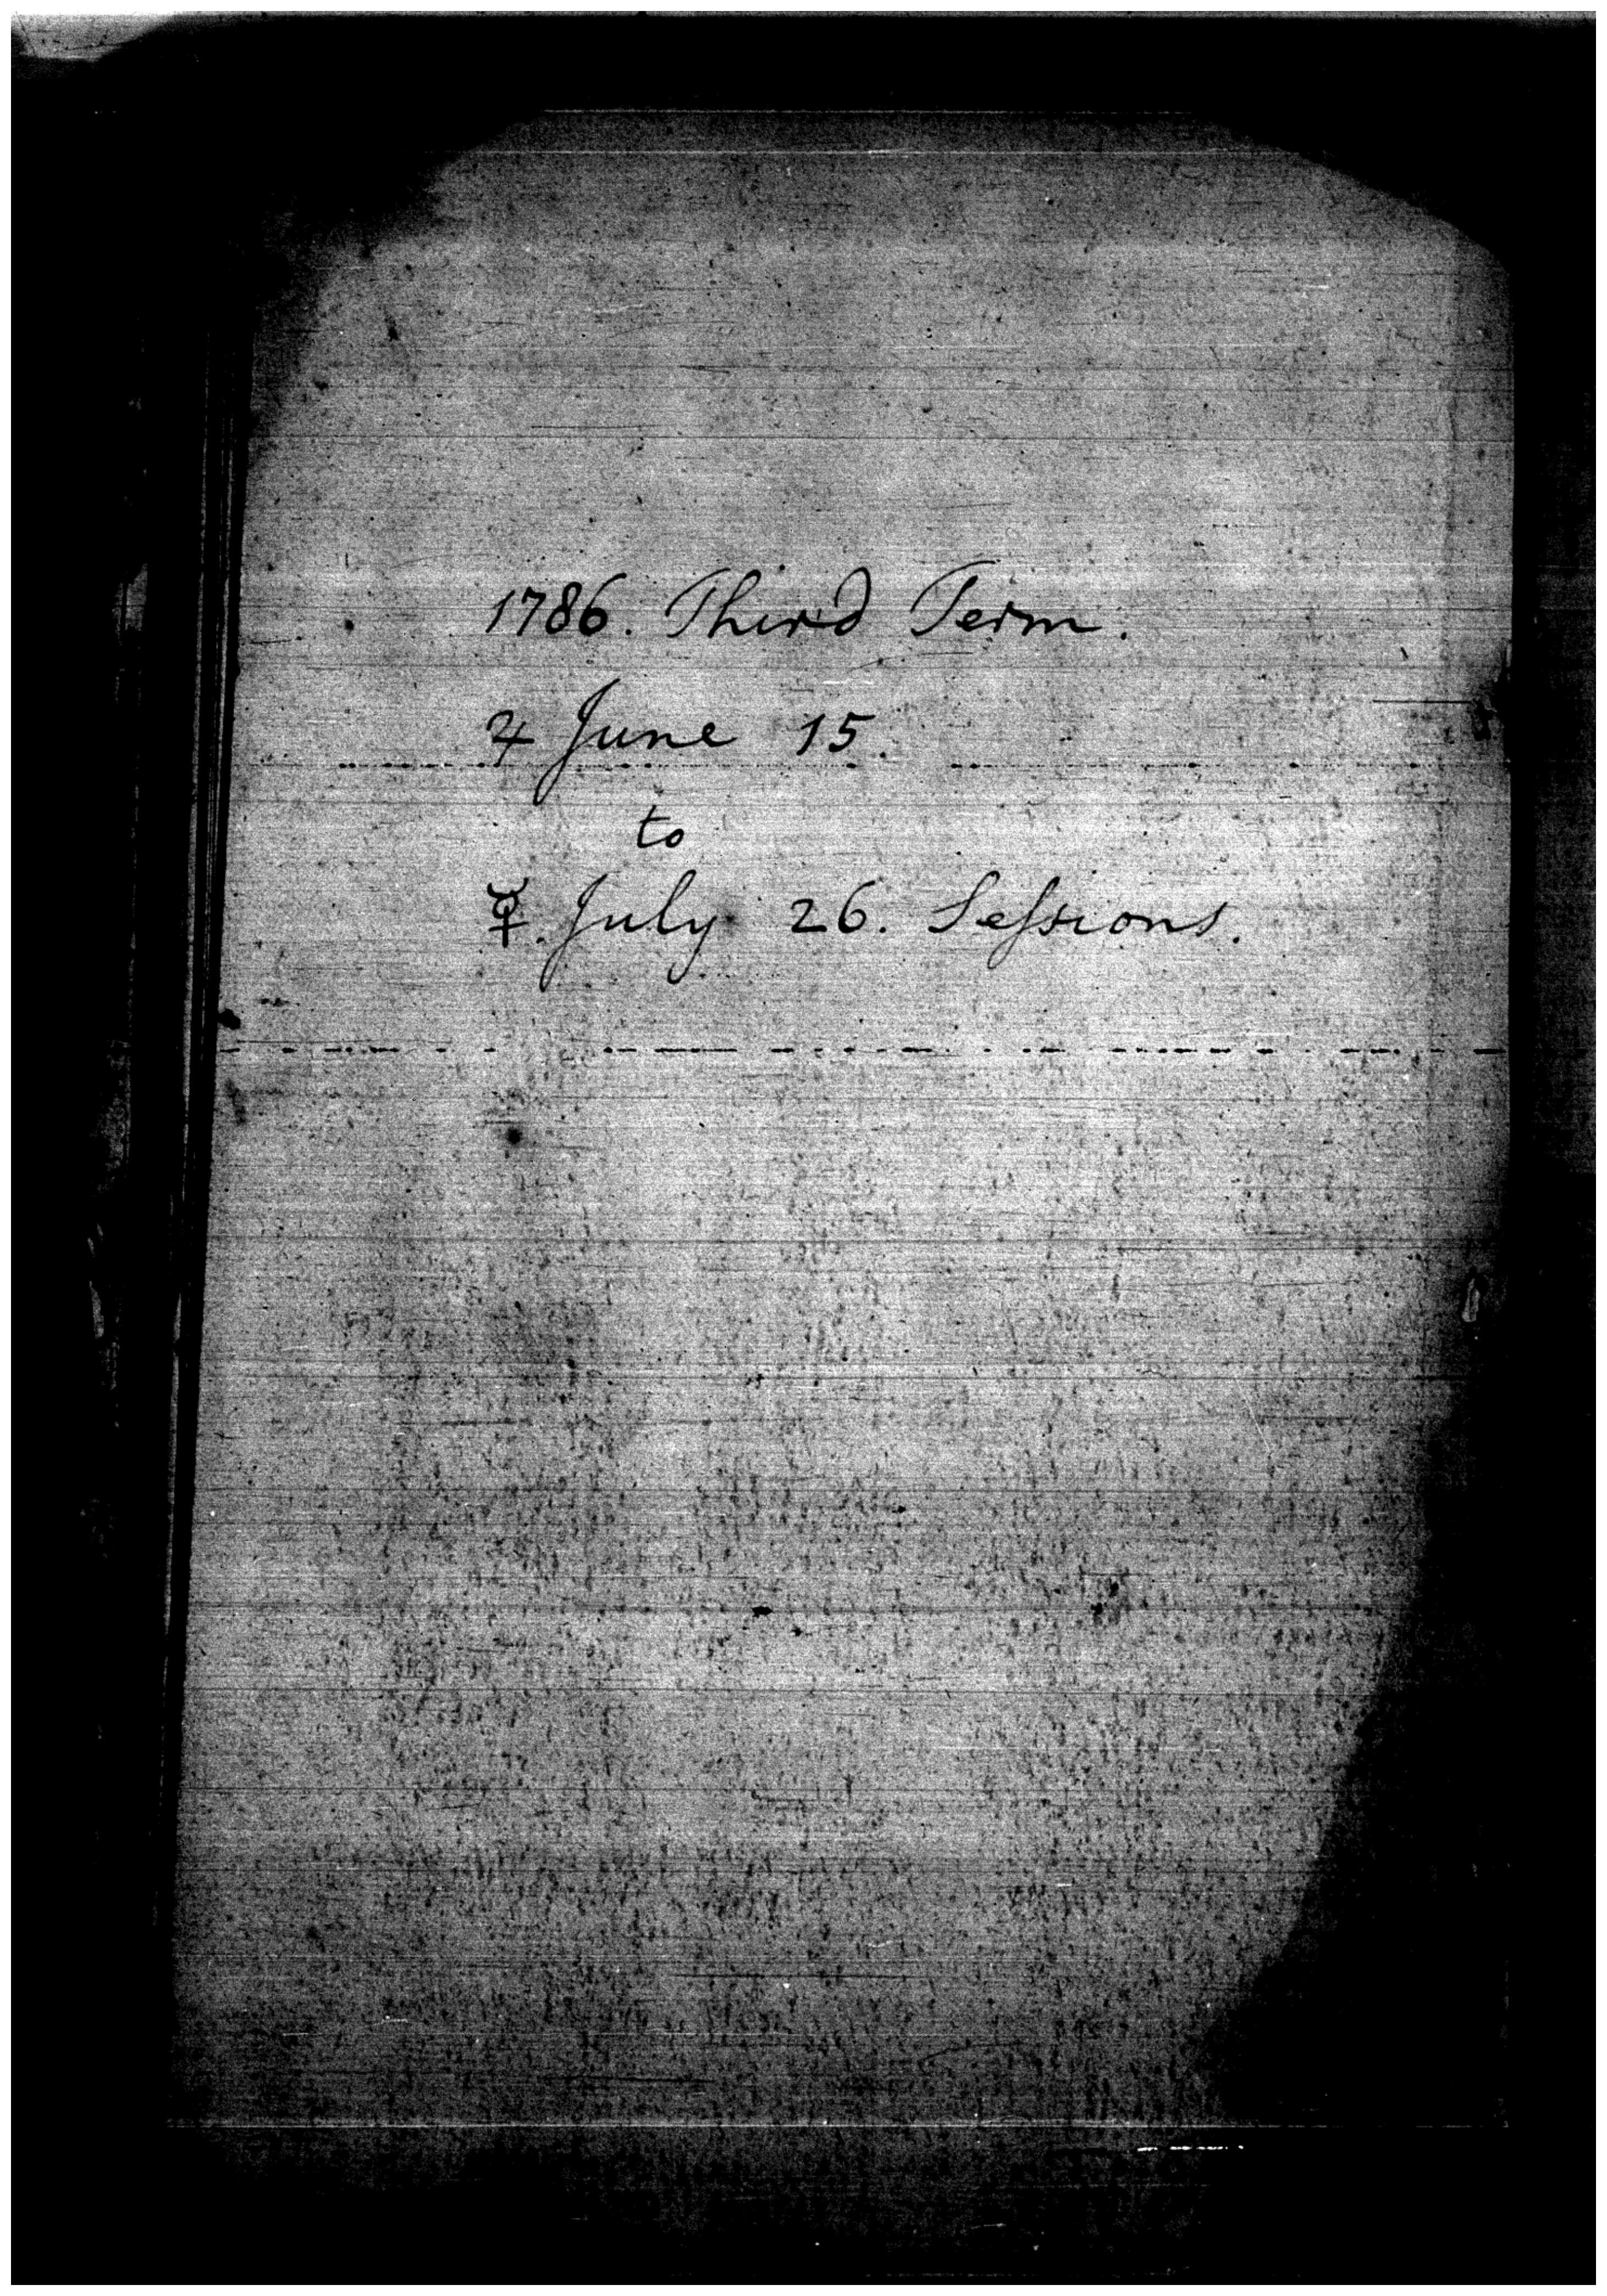 1786. Third Term.
♃ June 15.
to
☿. July 26. Seſsions.